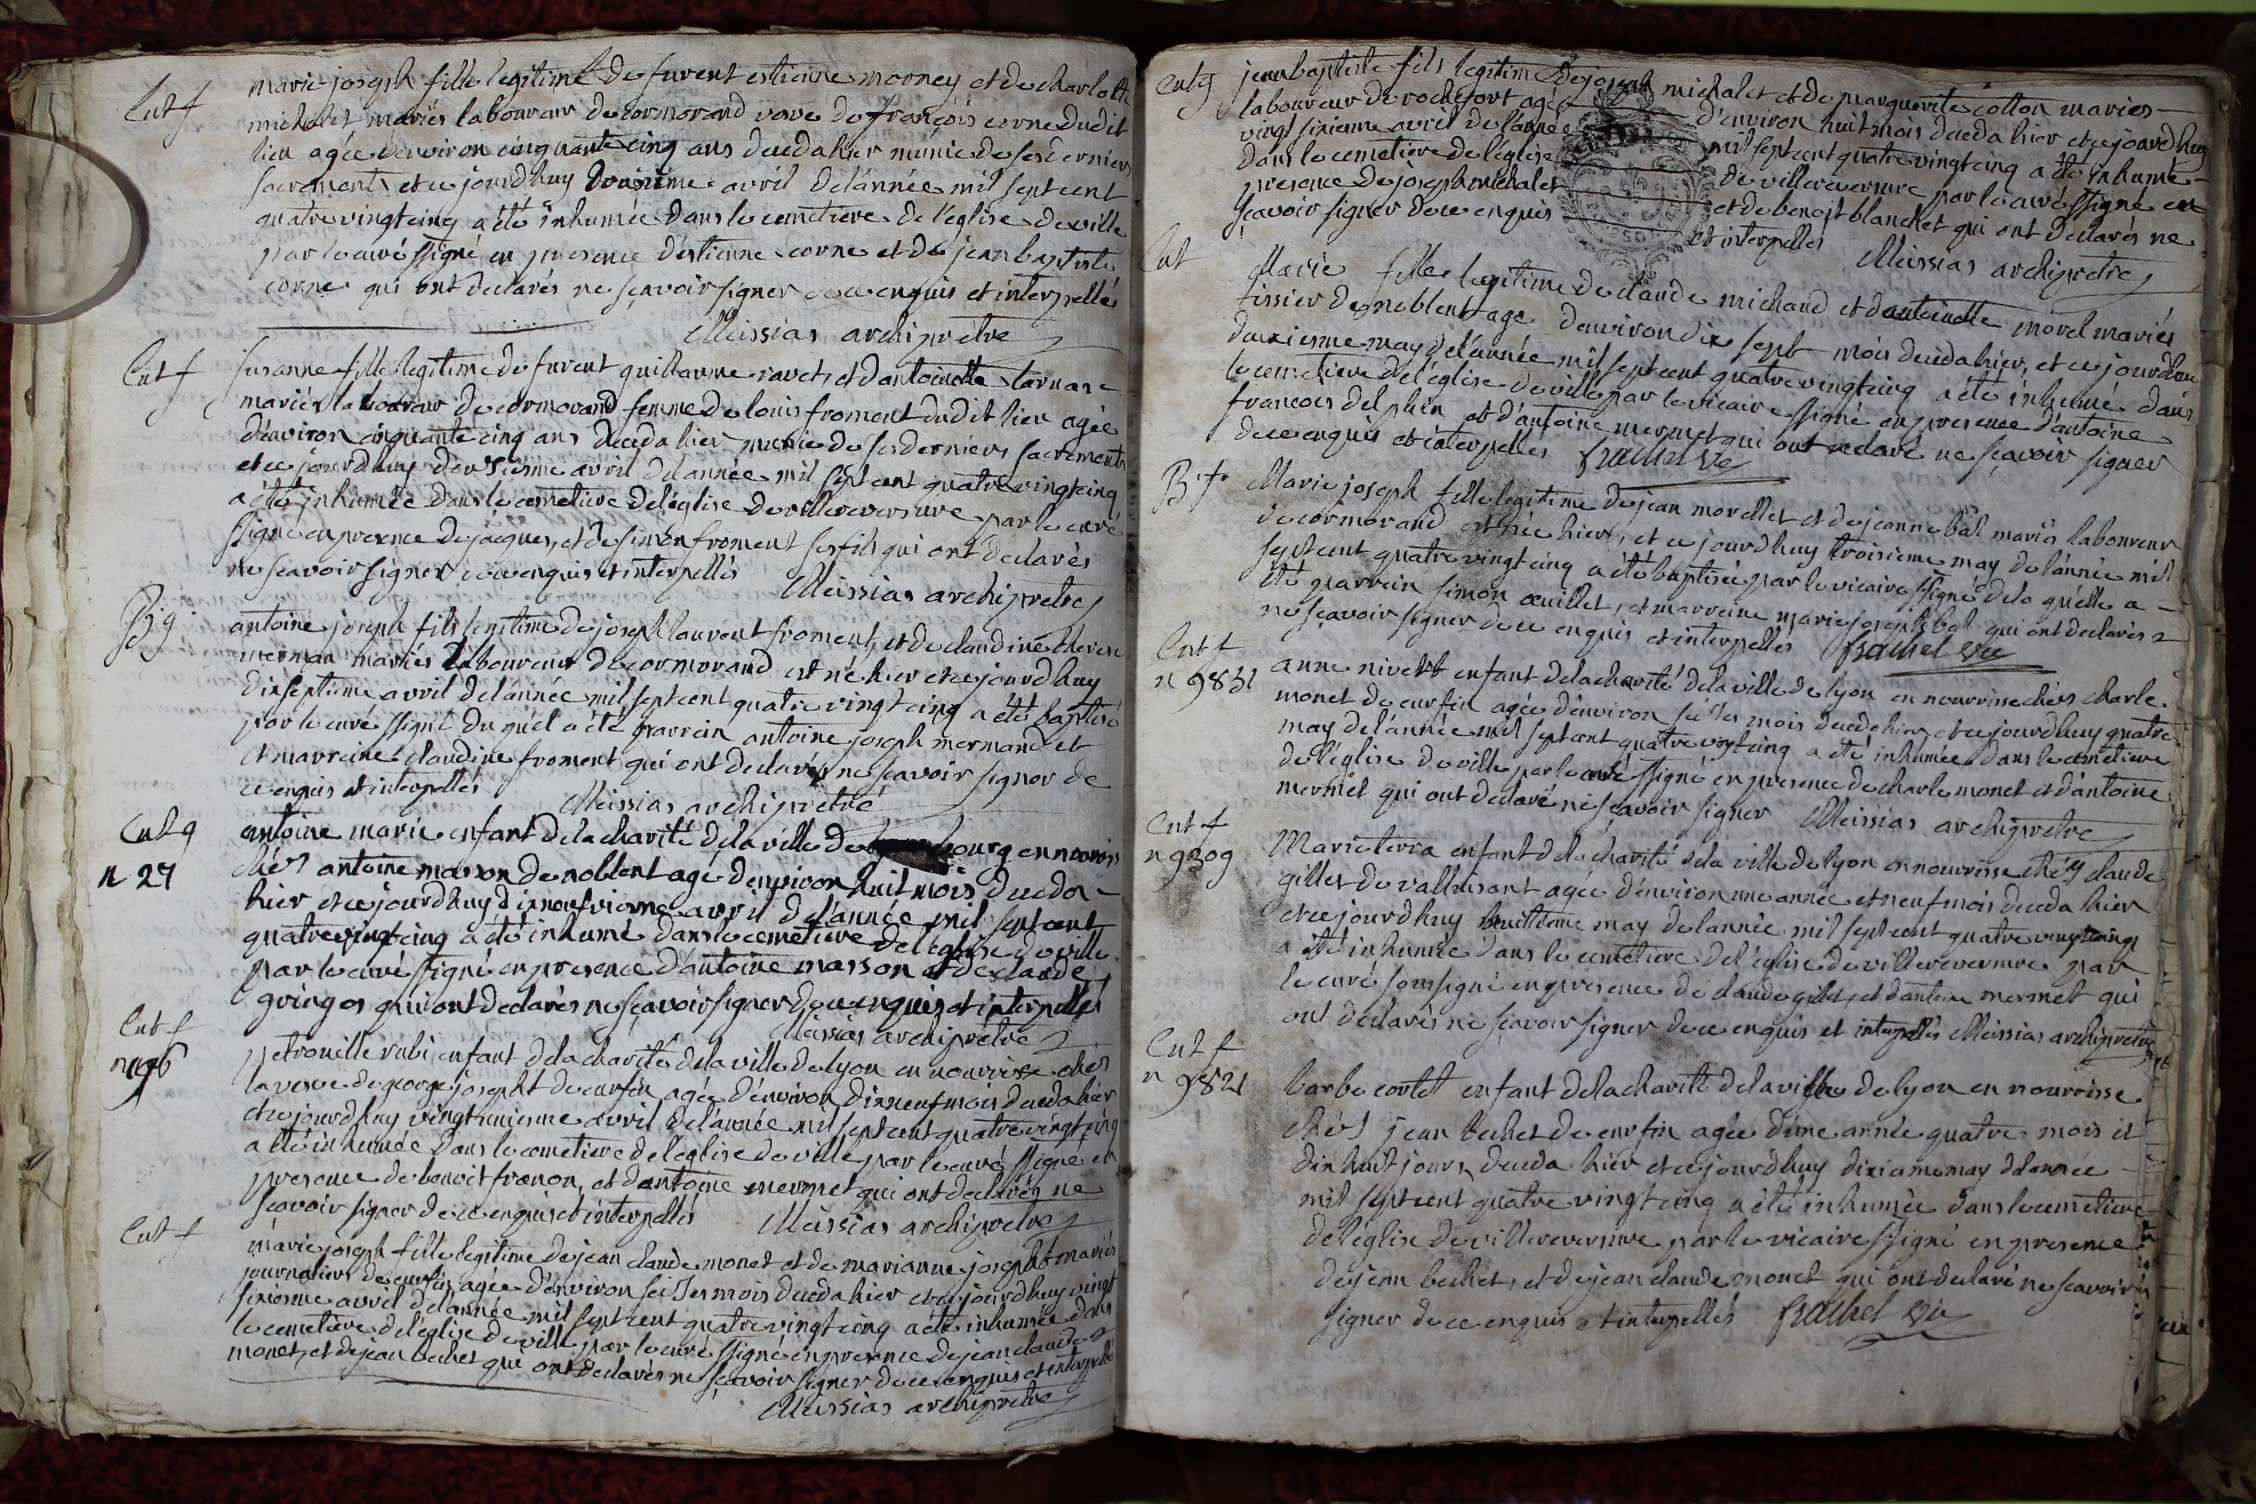 Ent f
marie joseph fille legitime de furent estienne mooney et de charlotte
michalet mariés laboureur de cormorand vove de françois corne dudit
lieu agée denviron cinquante cinq ans deceda hier munie de ses derniers
sacrements et ce jourdhuy troisième avril delánnée mil sept cent
quatre vingt cinq a été inhumée dans le cemetiere de l'église de ville
par le curé ssigné en presence d'estienne corne et de jean baptiste
corne qui ont declarés ne sçavoir signer de ce enquis et interpellés
Meissias archipretre
Ent f
susanne fille legitime de furent guillaume ravet et d'antoinette
mariés laboureur de cormorand femme de louis froment dudit lieu agée
d'environ cinquante cinq ans deceda hier munie de ses derniers sacrements
et ce jourdhuy avril delánnée mil sept cent quatre vingt cinq
a été inhumée dans le cemetiere del'église de villereversure par le curé
ssigné en presence de jacques, et de simon froment ses fils qui ont declarés
ne sçavoir signer de ce enquis et interpellés
Meissias archipretre
B g
antoine joseph fils legitime de joseph laurent froment, et de claudine therese
merman mariés laboureur de cormorand est né hier et ce jourdhuy
dixseptieme avril delánnée mil sept cent quatre vingt cinq a été baptisé
par le curé ssigné du quel a été parrain antoine joseph mermand et
et marraine claudine froment qui ont declarés ne sçavoir signer de
ce enquis et interpellés
Meissias archipretre
Ent g
n 27
antoine marie enfant delacharité delaville de bourg en nourriss
chés antoine masson de noblent agé denviron huit mois deceda
hier et ce jourdhuy dixneufvieme avril del'année mil sept cent
quatre vingt cinq a été inhumé dans le cemetiere del'église de ville
par le curé ssigné en presence d'antoine masson et de claude
gringos qui ont declarés ne sçavoir signer de ce enquis et interpellés
Meissias archiprêtre
Ent f
n 196
petronille rubi enfant delacharité delaville de lyon en nourrisse chés
la veuve de george josepht de curfin agée d'environ dixneuf mois deceda hier
et ce jourdhuy vingtunieme avril delánnée mil sept cent quatre vingt cinq
a été inhumée dans le cemetiere del'église de ville par le curé ssigné en
presence de benoit franon, et d'antoine mermet qui ont declarés ne
sçavoir signer de ce enquis et interpellés
Meissias archipretre
Ent f
marie joseph fille legitime de jean claude monet et de marianne josepht mariés
journaliers de curfin agée d'environ seises mois deceda hier et ce jourdhuy vingt
sixieme avril delánnée mil sept cent quatre vingt cinq a été inhumée dans
le cemetiere del'église de ville par le curé ssigné en presence de jean claude
monet, et de jean bechet qui ont declarés ne sçavoir signer de ce enquis et interpellé
Meissias archipretre
Ent g
jean baptiste fils legitime de joseph michalet et de marguerite cotton mariés
laboureur de rochefort agé d'environ huit mois deceda hier et ce jourdhuy
vingt sixieme avril de l'année mil sept cent quatre vingt cinq a été inhumé
dans le cemetiere de l'église de villereversure par le curé ssigné en
presence de joseph michalet et de benoit blanchet qui ont declarés ne
sçavoir signer de ce enquis et interpellés
Meissias archipretre
Ent
Marie fille legitime de claude michaud et d'antoinette morel mariés
tissier de noblent age denviron dix sept mois deceda hier, et ce jourdhui
deuxiesme may del'année mil sept cent quatre vingt cinq a été inhumé dans
le cemetiere del'église de ville par le vicaire ssigné en presence d'antoine
francois delphin et d'antoine mermet qui ont declaré ne sçavoir signer
de ce enquis et interpellés frachet vic
B f
Marie joseph fille legitime de jean morellet et de jeanne bal mariés laboureur
de cormorand est née hier, et ce jourdhuy troisieme may de lánnée mil
sept cent quatre vingt cinq a été baptisée par le vicaire ssigné dela quélle a
été parrain simon œuillet, et marreine marie joseph bal qui ont declarés
ne sçavoir signer de ce enquis et interpellés frachet vic
Ent f
n 9831
anne nivett enfant delacharité delaville de lyon en nourrisse chés charle
monet de curfin agée d'environ seises mois deceda hier et ce jourdhuy quatre
may de lánnée mil sept cent quatre vingt cinq a été inhumée dans le cemetiere
de l'église de ville par le curé ssigné en presence de charle monet et d'antoine
mermet qui ont declaré ne sçavoir signer Meissias archipretre
Ent f
n 9309
Marie terra enfant delacharité dela ville de lyon en nourrisse chés claude
gillet de vallusant agée d'environ une année et neuf mois deceda hier
et ce jourdhuy huitieme may de lannée mil sept cent quatre vingt cinq
a été inhumée dans le cemetiere del'église de villereversure par
le curé soussigné en presence de claude gilet, et d'antoine mermet qui
ont declarés ne sçavoir signer de ce enquis et interpellés Meissias archipretre
Ent f
n 9821
barbe cortet enfant delacharité delaville de lyon en nourrisse
chés jean bechet de curfin agée dune année quatre mois et
dix huit jours deceda hier et ce jourdhuy dixiemme may delannée
mil sept cent quatre vingt cinq a été inhumée dans le cemetiere
de l'église de villereversure par le vicaire ssigné en presence
de jean bechet, et de jean claude monet qui ont declaré ne scavoir
signer de ce enquis et interpellés frachet vic